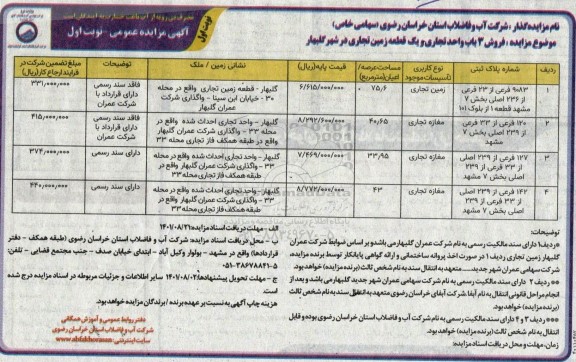 صرفه‌جویی در مصرف آب باعث خسارت به آیندگان است
آگهی مزایده عمومی - نوبت اول
نوبت اول
نام مزایده‌گذار : شرکت آب و فاضلاب استان خراسان رضوی (سهامی خاص)
موضوع مزایده : فروش ۳ باب واحد تجاری و یک قطعه زمین تجاری در شهر گلبهار
ردیف | شماره پلاک ثبتی | نوع کاربری تاسیسات موجود | مساحت عرصه/ اعیان (مترمربع) | قیمت پایه (ریال) | نشانی زمین / ملک | توضیحات | مبلغ تضمین شرکت در فرایند ارجاع کار (ریال)
۱ | ۹۰۸۳ فرعی از ۲۳ فرعی از ۲۳۶ اصلی بخش ۷ مشهد قطعه ۱ از بلوک ۱۰۱ | زمین تجاری | ۷۵,۶ | ۶/۶۱۵/۰۰۰/۰۰۰ | گلبهار - قطعه زمین تجاری واقع در محله ۳۰ - خیابان ابن سینا - واگذاری شرکت عمران گلبهار | فاقد سند رسمی دارای قرارداد با شرکت عمران | ۳۳۱,۰۰۰,۰۰۰
۲ | ۱۲۰ فرعی از ۳۳ فرعی از ۲۳۹ اصلی بخش ۷ مشهد | مغازه تجاری | ۴۰,۶۵ | ۸/۲۹۲/۶۰۰/۰۰۰ | گلبهار - واحد تجاری احداث شده واقع در محله ۳۳ - واگذاری شرکت عمران گلبهار واقع در طبقه همکف فاز تجاری محله ۳۳ | فاقد سند رسمی دارای قرارداد با شرکت عمران | ۴۱۵,۰۰۰,۰۰۰
۳ | ۱۲۷ فرعی از ۲۳۹ اصلی از ۳۳ فرعی از ۲۳۹ اصلی بخش ۷ مشهد | مغازه تجاری | ۳۳,۹۵ | ۷/۴۶۹/۰۰۰/۰۰۰ | گلبهار - واحد تجاری احداث شده واقع در محله ۳۳ - واگذاری شرکت عمران گلبهار واقع در طبقه همکف فاز تجاری محله ۳۳ | دارای سند رسمی | ۳۷۴,۰۰۰,۰۰۰
۴ | ۱۴۲ فرعی از ۲۳۹ اصلی از ۳۳ فرعی از ۲۳۹ اصلی بخش ۷ مشهد | مغازه تجاری | ۴۳ | ۸/۷۷۲/۰۰۰/۰۰۰ | گلبهار - واحد تجاری احداث شده واقع در محله ۳۳ - واگذاری شرکت عمران گلبهار واقع در طبقه همکف فاز تجاری محله ۳۳ | دارای سند رسمی | ۴۴۰,۰۰۰,۰۰۰
توضیحات:
*ردیف ۱ دارای سند مالکیت رسمی به نام شرکت عمران گلبهار می باشد و بر اساس ضوابط شرکت عمران
گلبهار زمین تجاری ردیف ۱ در صورت اخذ پروانه ساختمانی و ارائه گواهی پایانکار توسط برنده مزایده،
شرکت سهامی عمران شهر جدید ... متعهد به انتقال سند به نام شخص ثالث (برنده مزایده) خواهد بود.
** ردیف ۲ دارای سند مالکیت رسمی به نام شرکت سهامی عمران شهر جدید گلبهار می باشد و بعد از
انجام مراحل قانونی انتقال به نام آبفا شرکت آبفای خراسان رضوی متعهد به انتقال سند به نام شخص ثالث
(برنده مزایده) خواهد بود.
*** ردیف ۳ و ۴ دارای سند مالکیت رسمی به نام شرکت آب و فاضلاب استان خراسان رضوی بوده و قابل
انتقال به نام شخص ثالث (برنده مزایده) خواهد بود.
زمان، مهلت و محل دریافت اسناد مزایده:
الف - مهلت دریافت اسناد مزایده: ۱۴۰۱/۰۸/۲۱
ب - محل دریافت اسناد مزایده: شرکت آب و فاضلاب استان خراسان رضوی (طبقه همکف - دفتر
قراردادها) واقع در مشهد - بولوار وکیل آباد - ابتدای خیابان صدف - جنب مجتمع قضایی - تلفن:
۰۵۱-۳۸۶۷۸۸۴۱-۵
ج - مهلت تحویل پیشنهادها: ۱۴۰۱/۰۹/۰۲ سایر اطلاعات و جزئیات مربوطه در اسناد مزایده درج شده
است.
هزینه چاپ آگهی به نسبت بر عهده برنده / برندگان مزایده خواهد بود.
دفتر روابط عمومی و آموزش همگانی
شرکت آب و فاضلاب استان خراسان رضوی
سایت اینترنتی: www.abfakhorasan